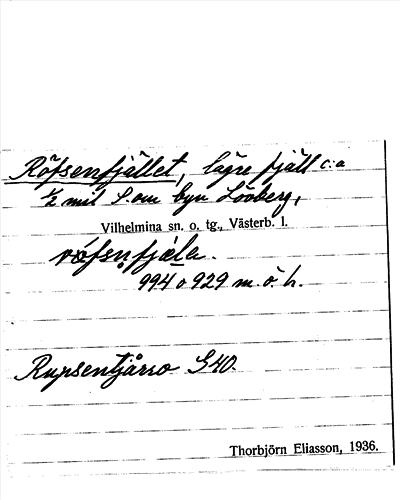 Röfsenfjället, lägre fjäll c:a
½ mil S. om byn Lövberg,
Vilhelmina sn. o. tg., Västerb. l.
röfsn̥fjäla.
994 o 929 m. ö. h.
Rupsentjårro S40.
Thorbjörn Eliasson, 1936.